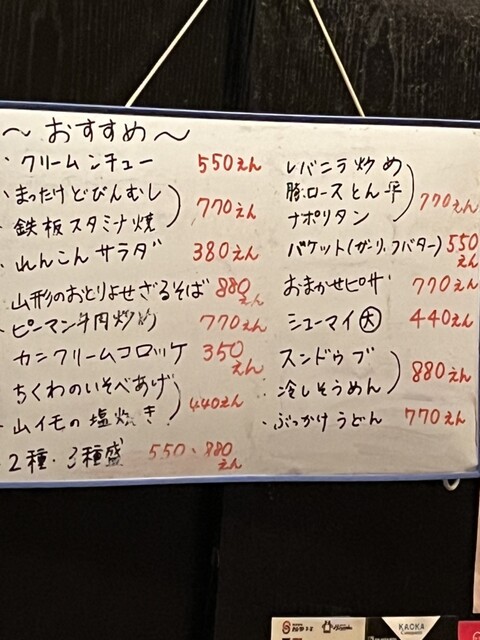 〜おすすめ〜
・クリームシチュー 550えん
・まったけどびんむし
・鉄板スタミナ焼 770えん
・れんこんサラダ 380えん
・山形のおとりよせざるそば 880えん
・ピーマン牛肉炒め 770えん
カニクリームコロッケ 350えん
ちくわのいそべあげ
・山イモの塩焼き 440えん
2種・3種盛 550・880えん
レバニラ炒め
豚ロースとん平
ナポリタン 770えん
バケット(ガーリックバター) 550えん
おまかせピザ 770えん
シューマイ大 440えん
スンドゥブ
・冷しそうめん 880えん
・ぶっかけうどん 770えん
KAOKA